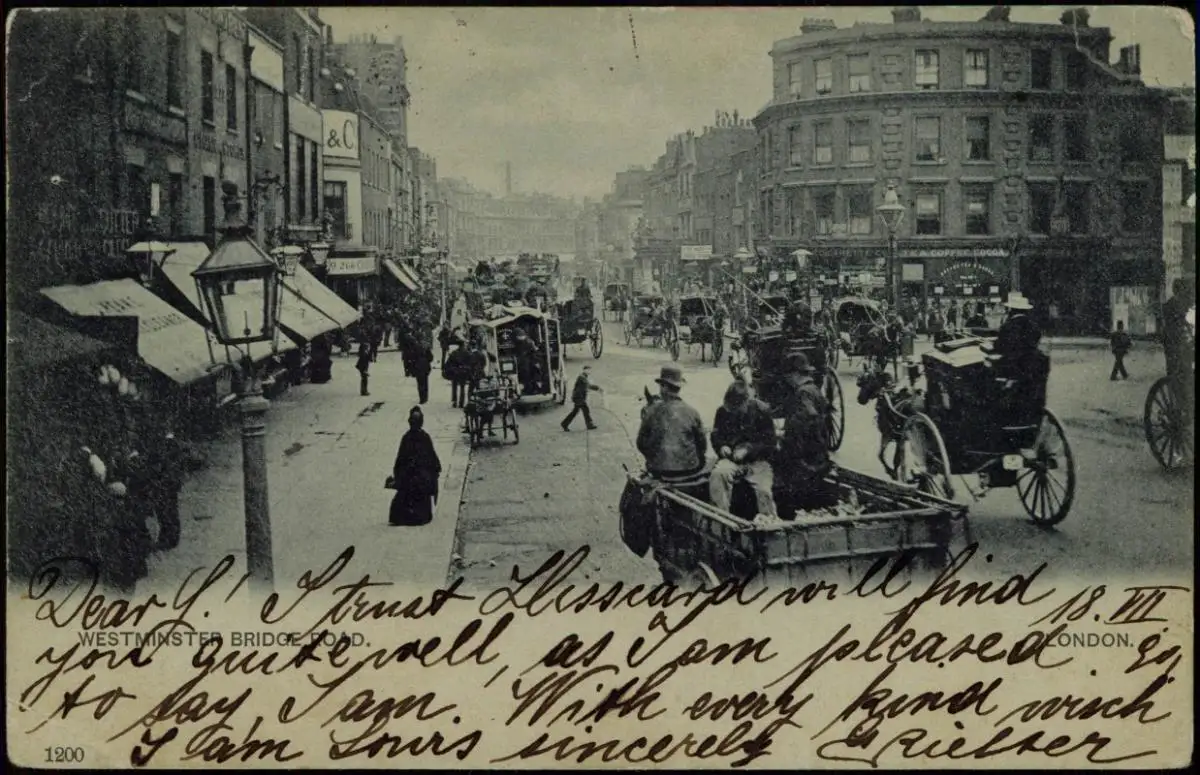 & C
COFFEE COCOA
Dear G.! I trust this card will find 18. VII
WESTMINSTER BRIDGE ROAD. LONDON.
you quite well, as I am pleased 99
to say, I am. With every kind wisch
I am Yours sincerely
1200